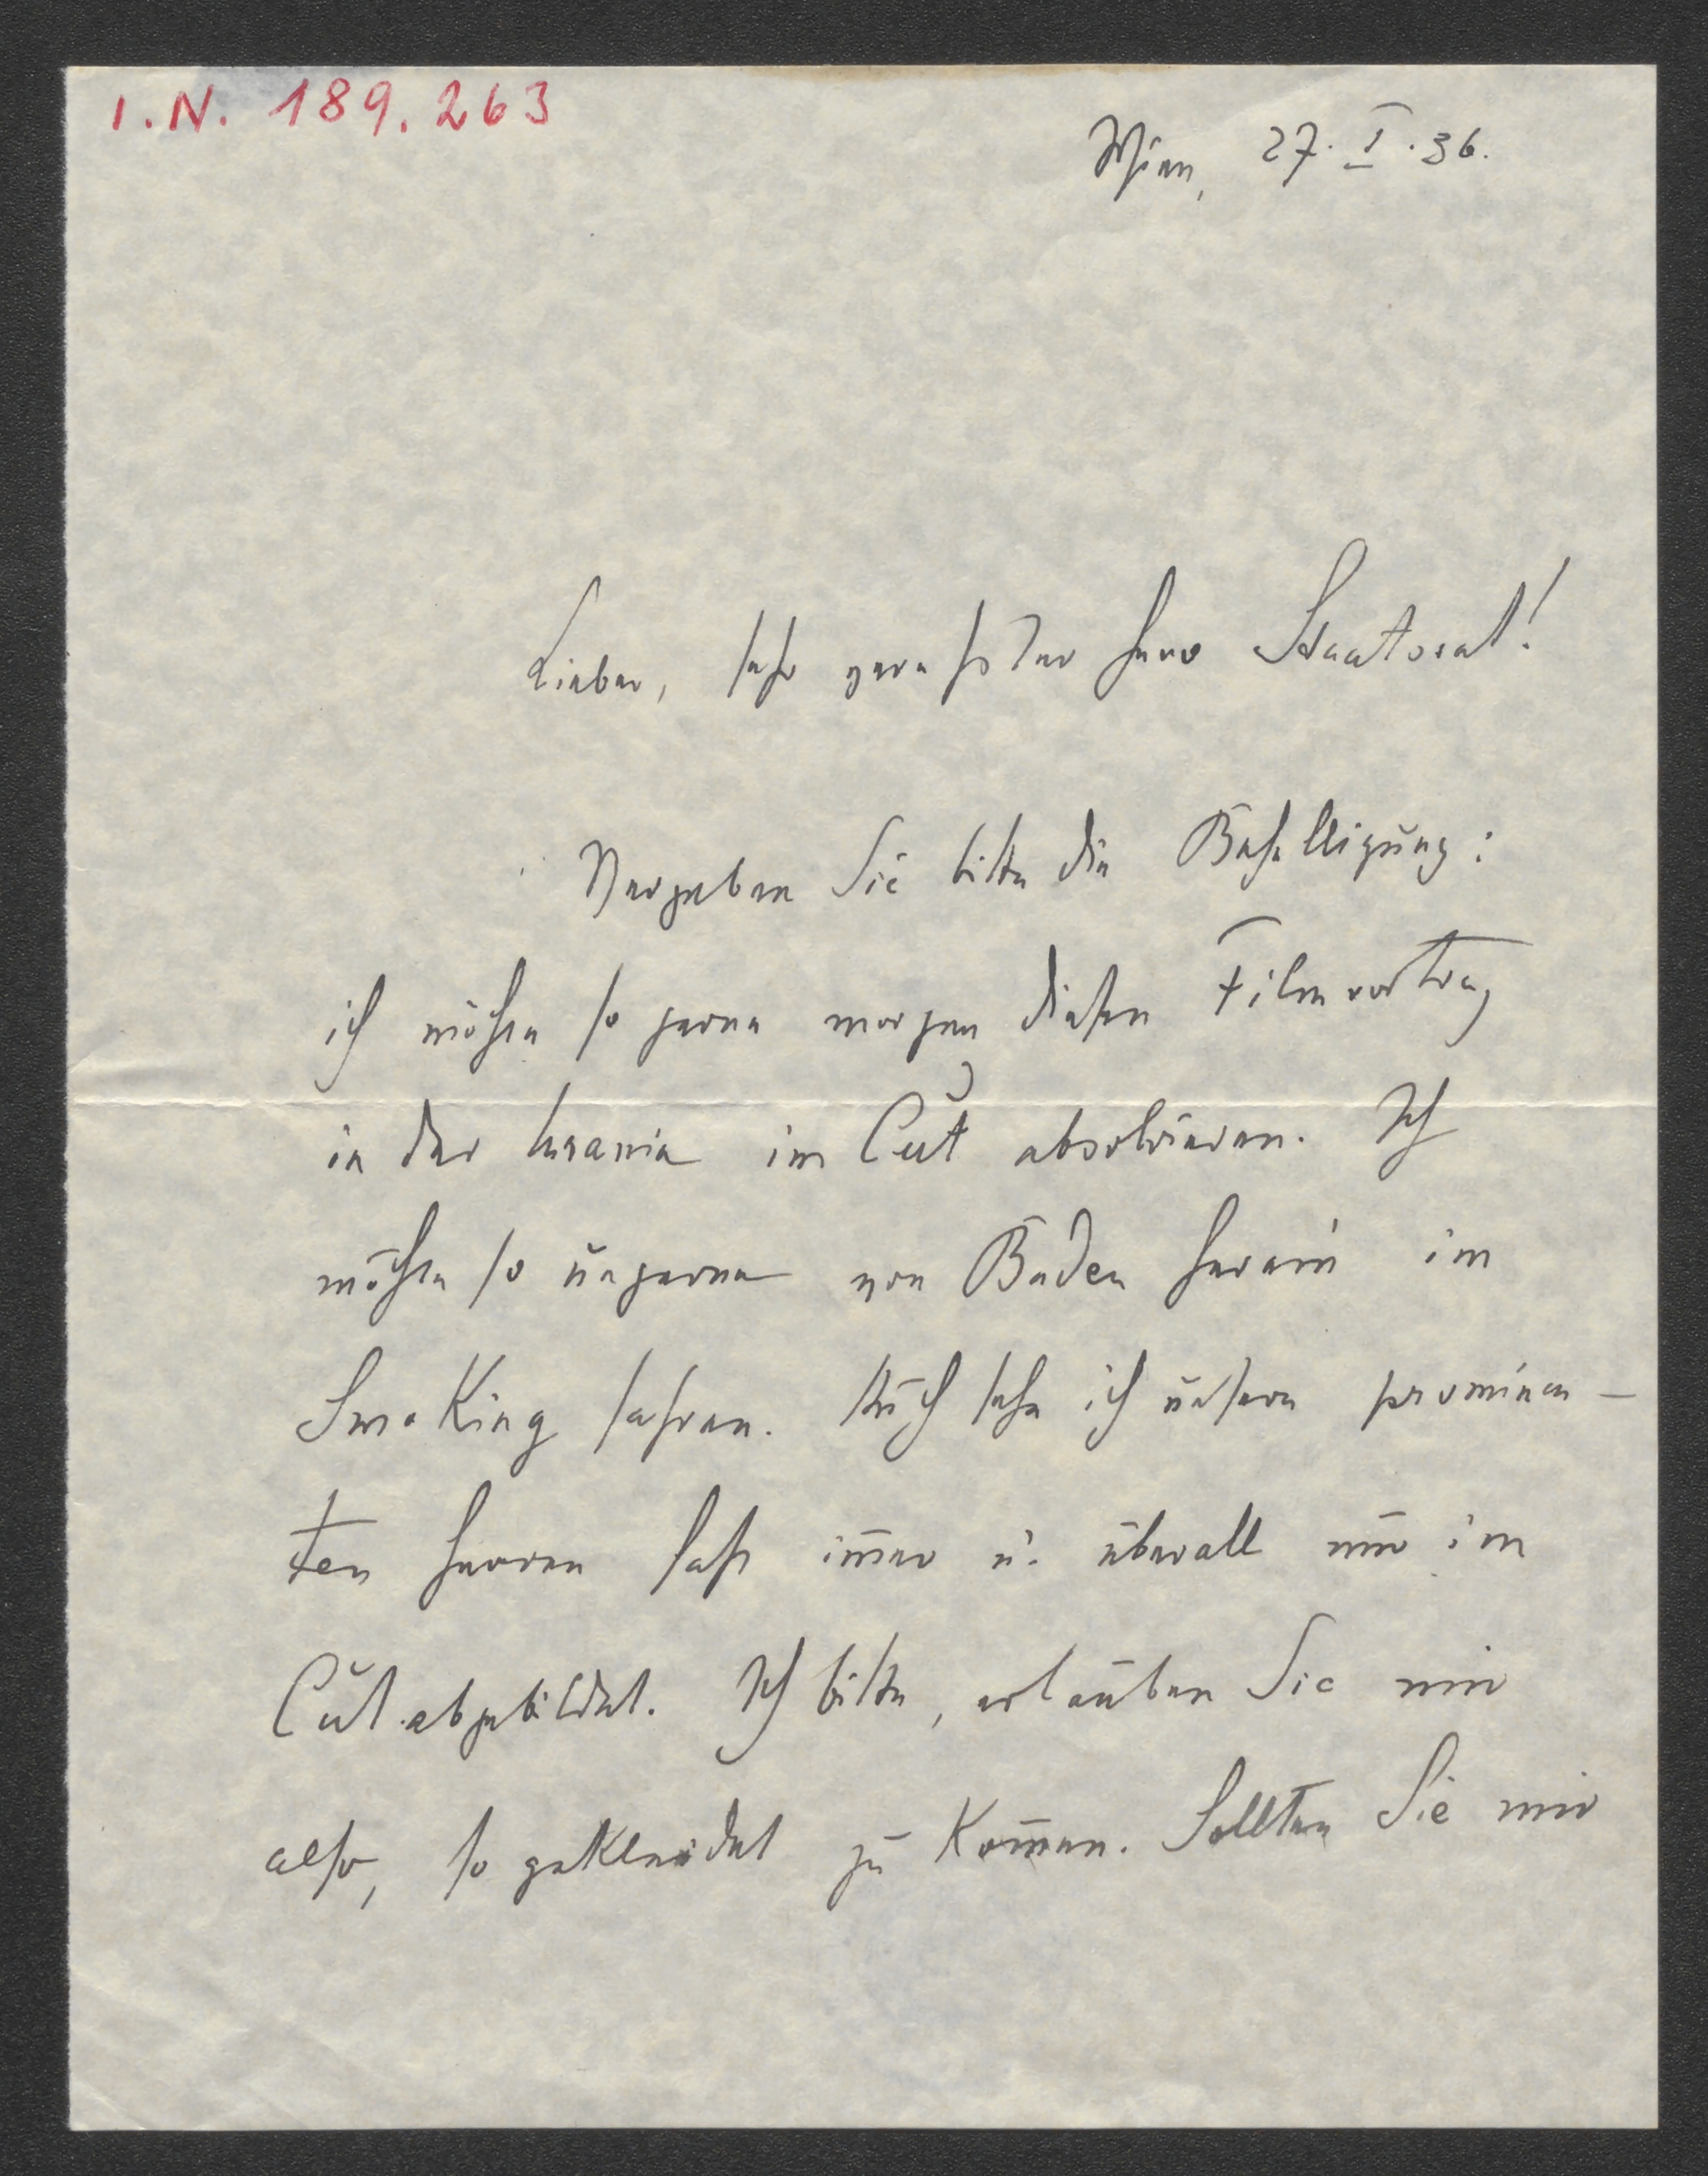 I.N. 189.263
Wien, 27. I. 36.
Lieber, sehr verehrter Herr Staatsrat!
Vergeben Sie bitte die Behelligung:
ich möchte so gerne morgen diesen Filmvortrag
in der Urania im Cut absolvieren. Ich
möchte so ungerne von Baden herein im
Smoking fahren. Auch sehe ich unsern prominen-
ten Herren fast im̄er u. überall nur im
Cut abgebildet. Ich bitte, erlauben Sie mir
also, so gekleidet zu kom̄en. Sollten Sie mir